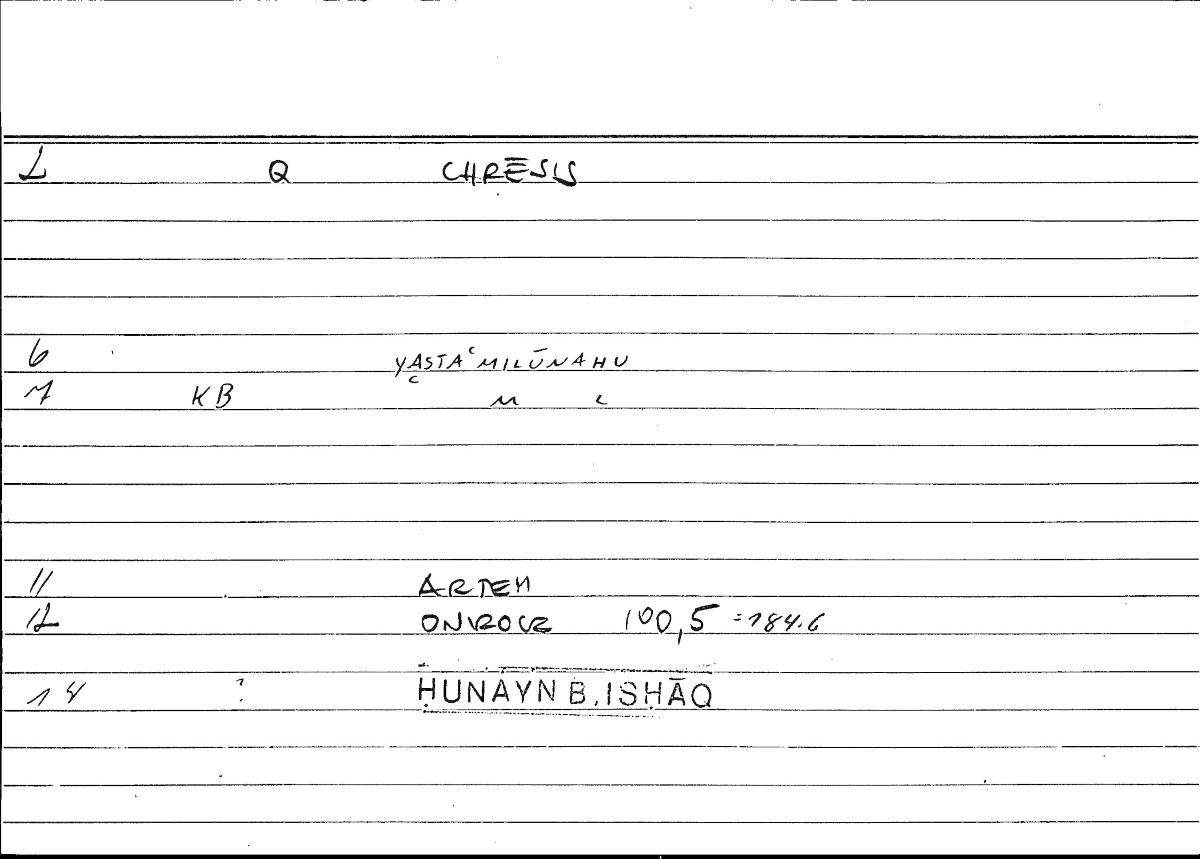 2 Q CHRĒSIS
6 YASTAʿMILŪNAHU
7 KB
11 ARTEM
12 ONIROCR 100,5 =184.6
14 ? ḤUNAYN B. ISḤĀQ